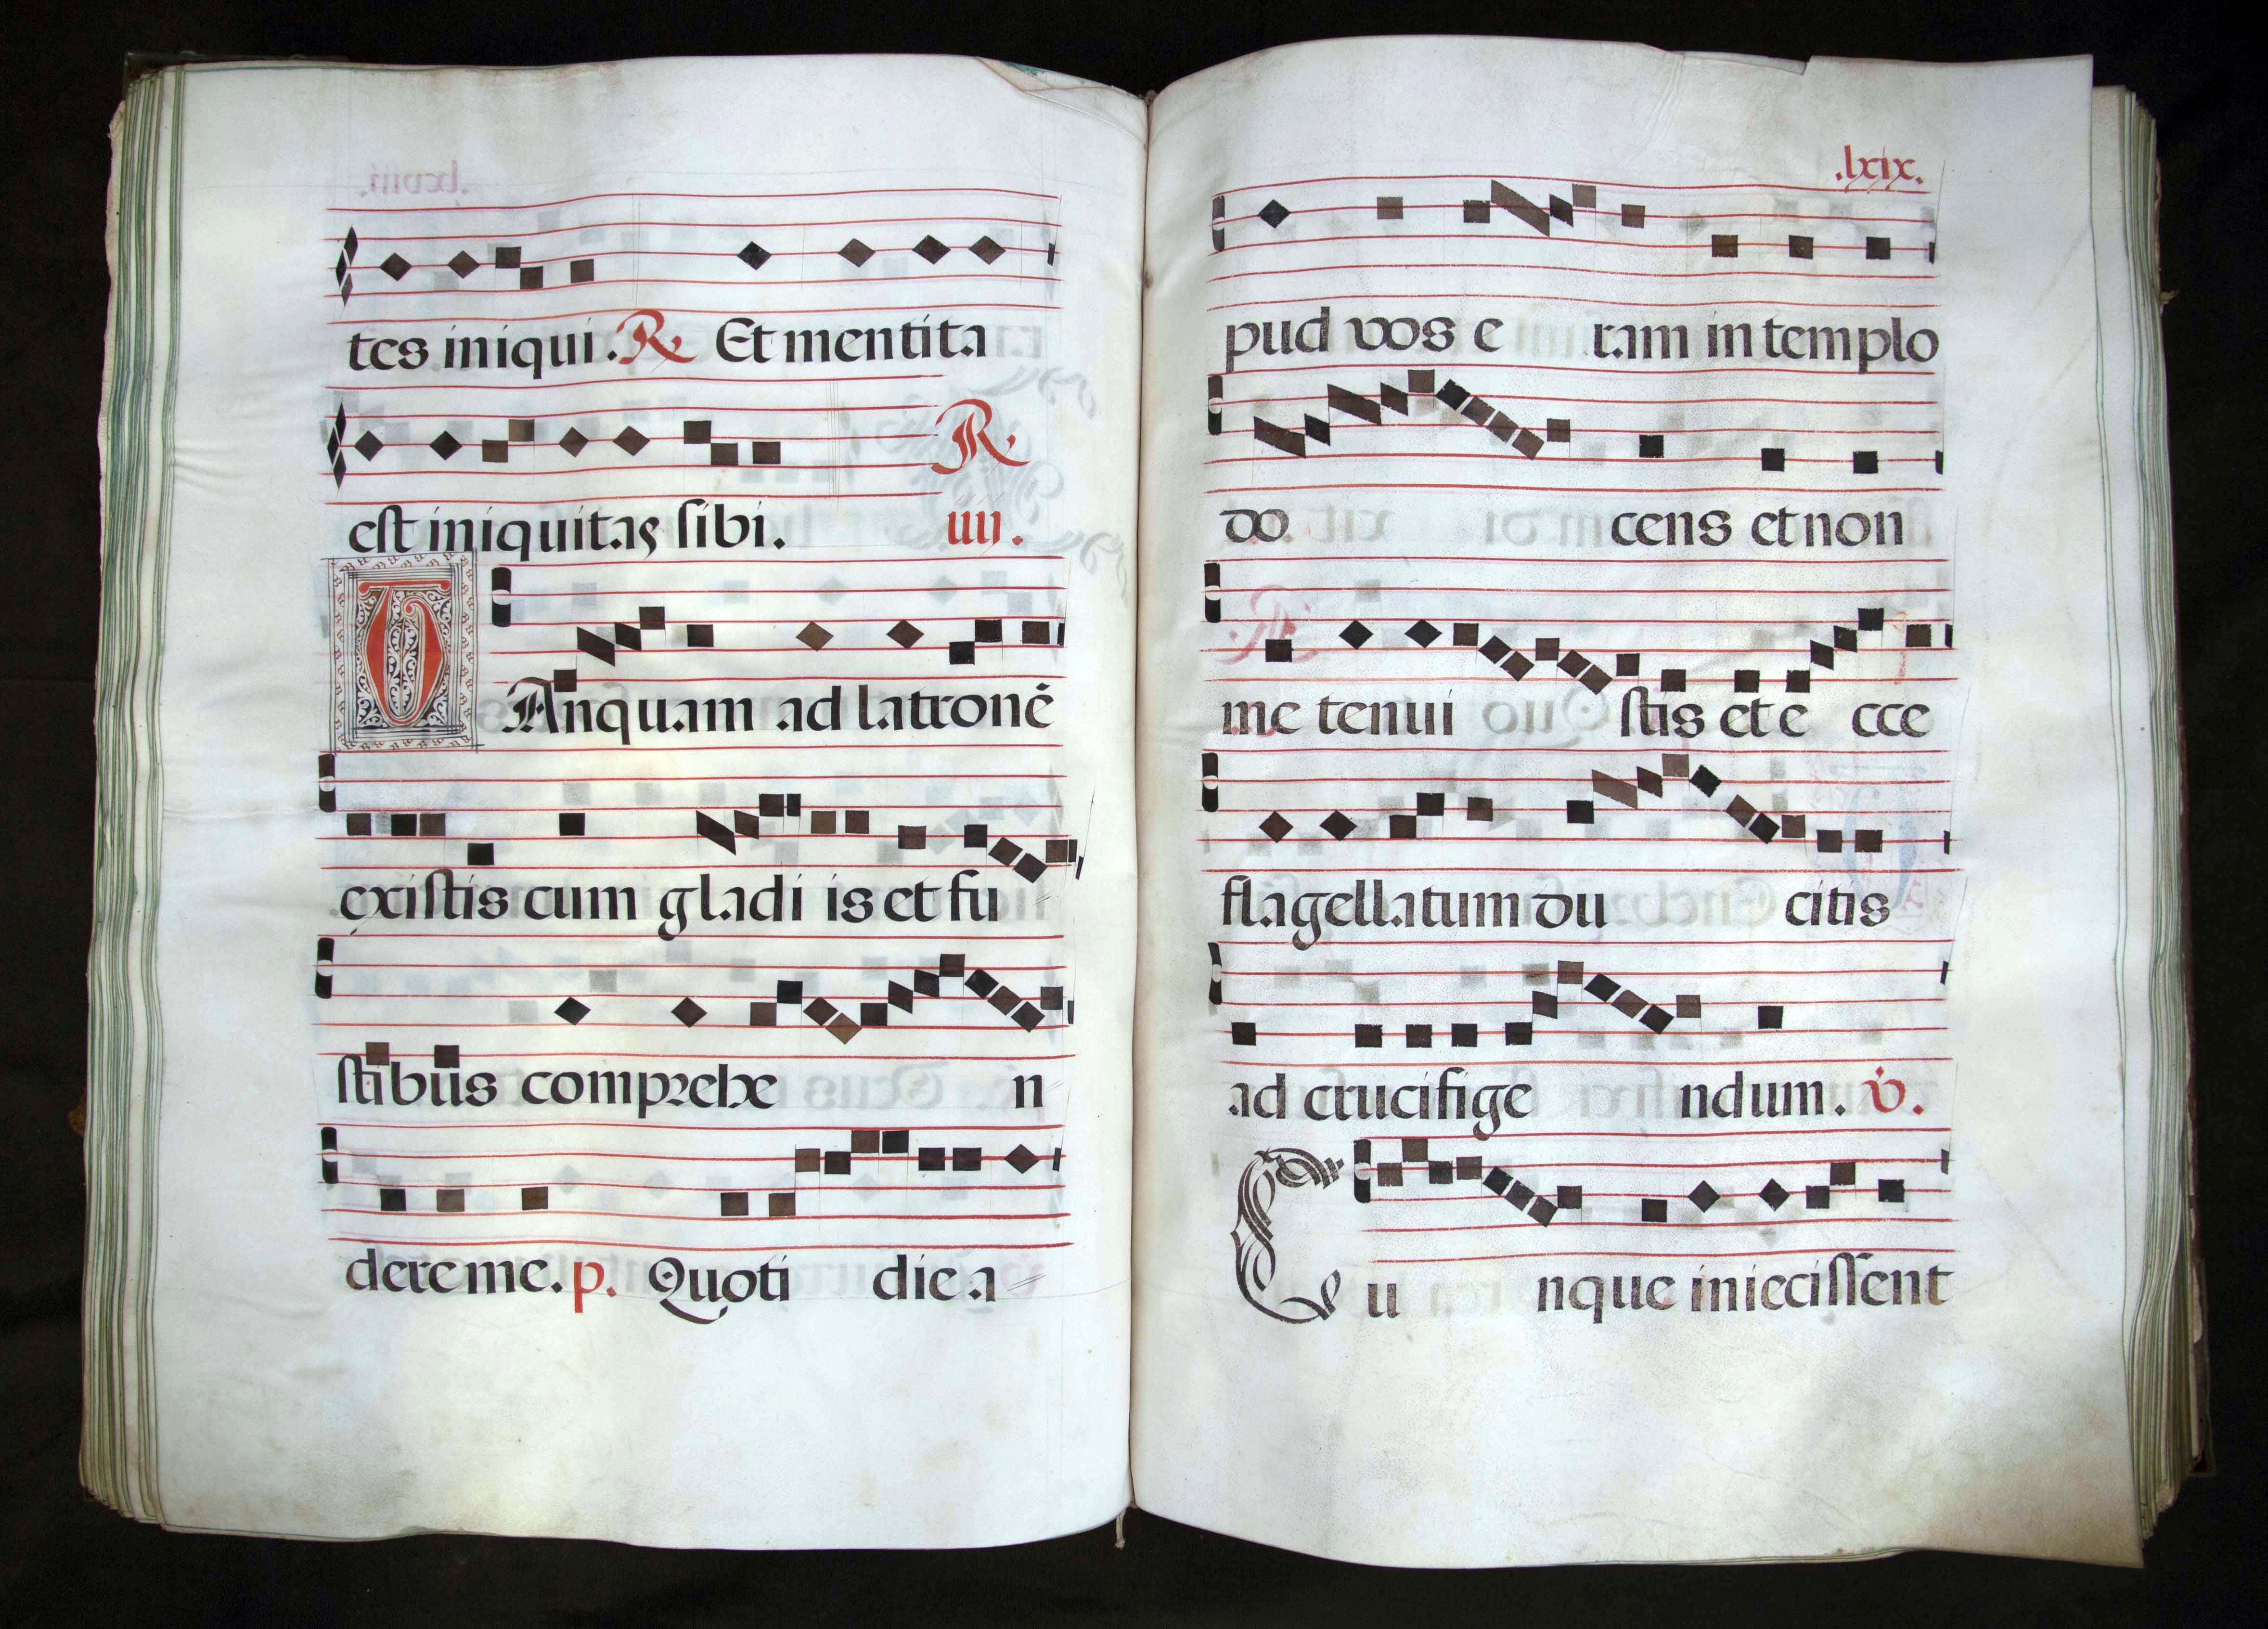 tes iniqui. R. Et mentita
est iniquitas sibi. R.
iiij.
TAnquam ad latronē
existis cum gladiis et fu
stibus comprehe n
dere me. p. Quoti die a
.lxix.
pud vos e ram in templo
do cens et non
me tenui stis et e cce
flagellatum du citis
ad crucifige ndum. ℣.
Cu nque iniecissent